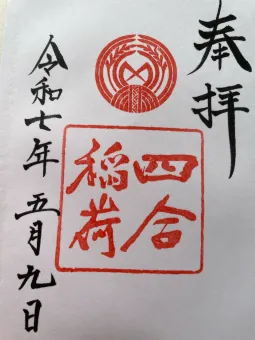 奉拝
四合
稲荷
令和七年五月九日